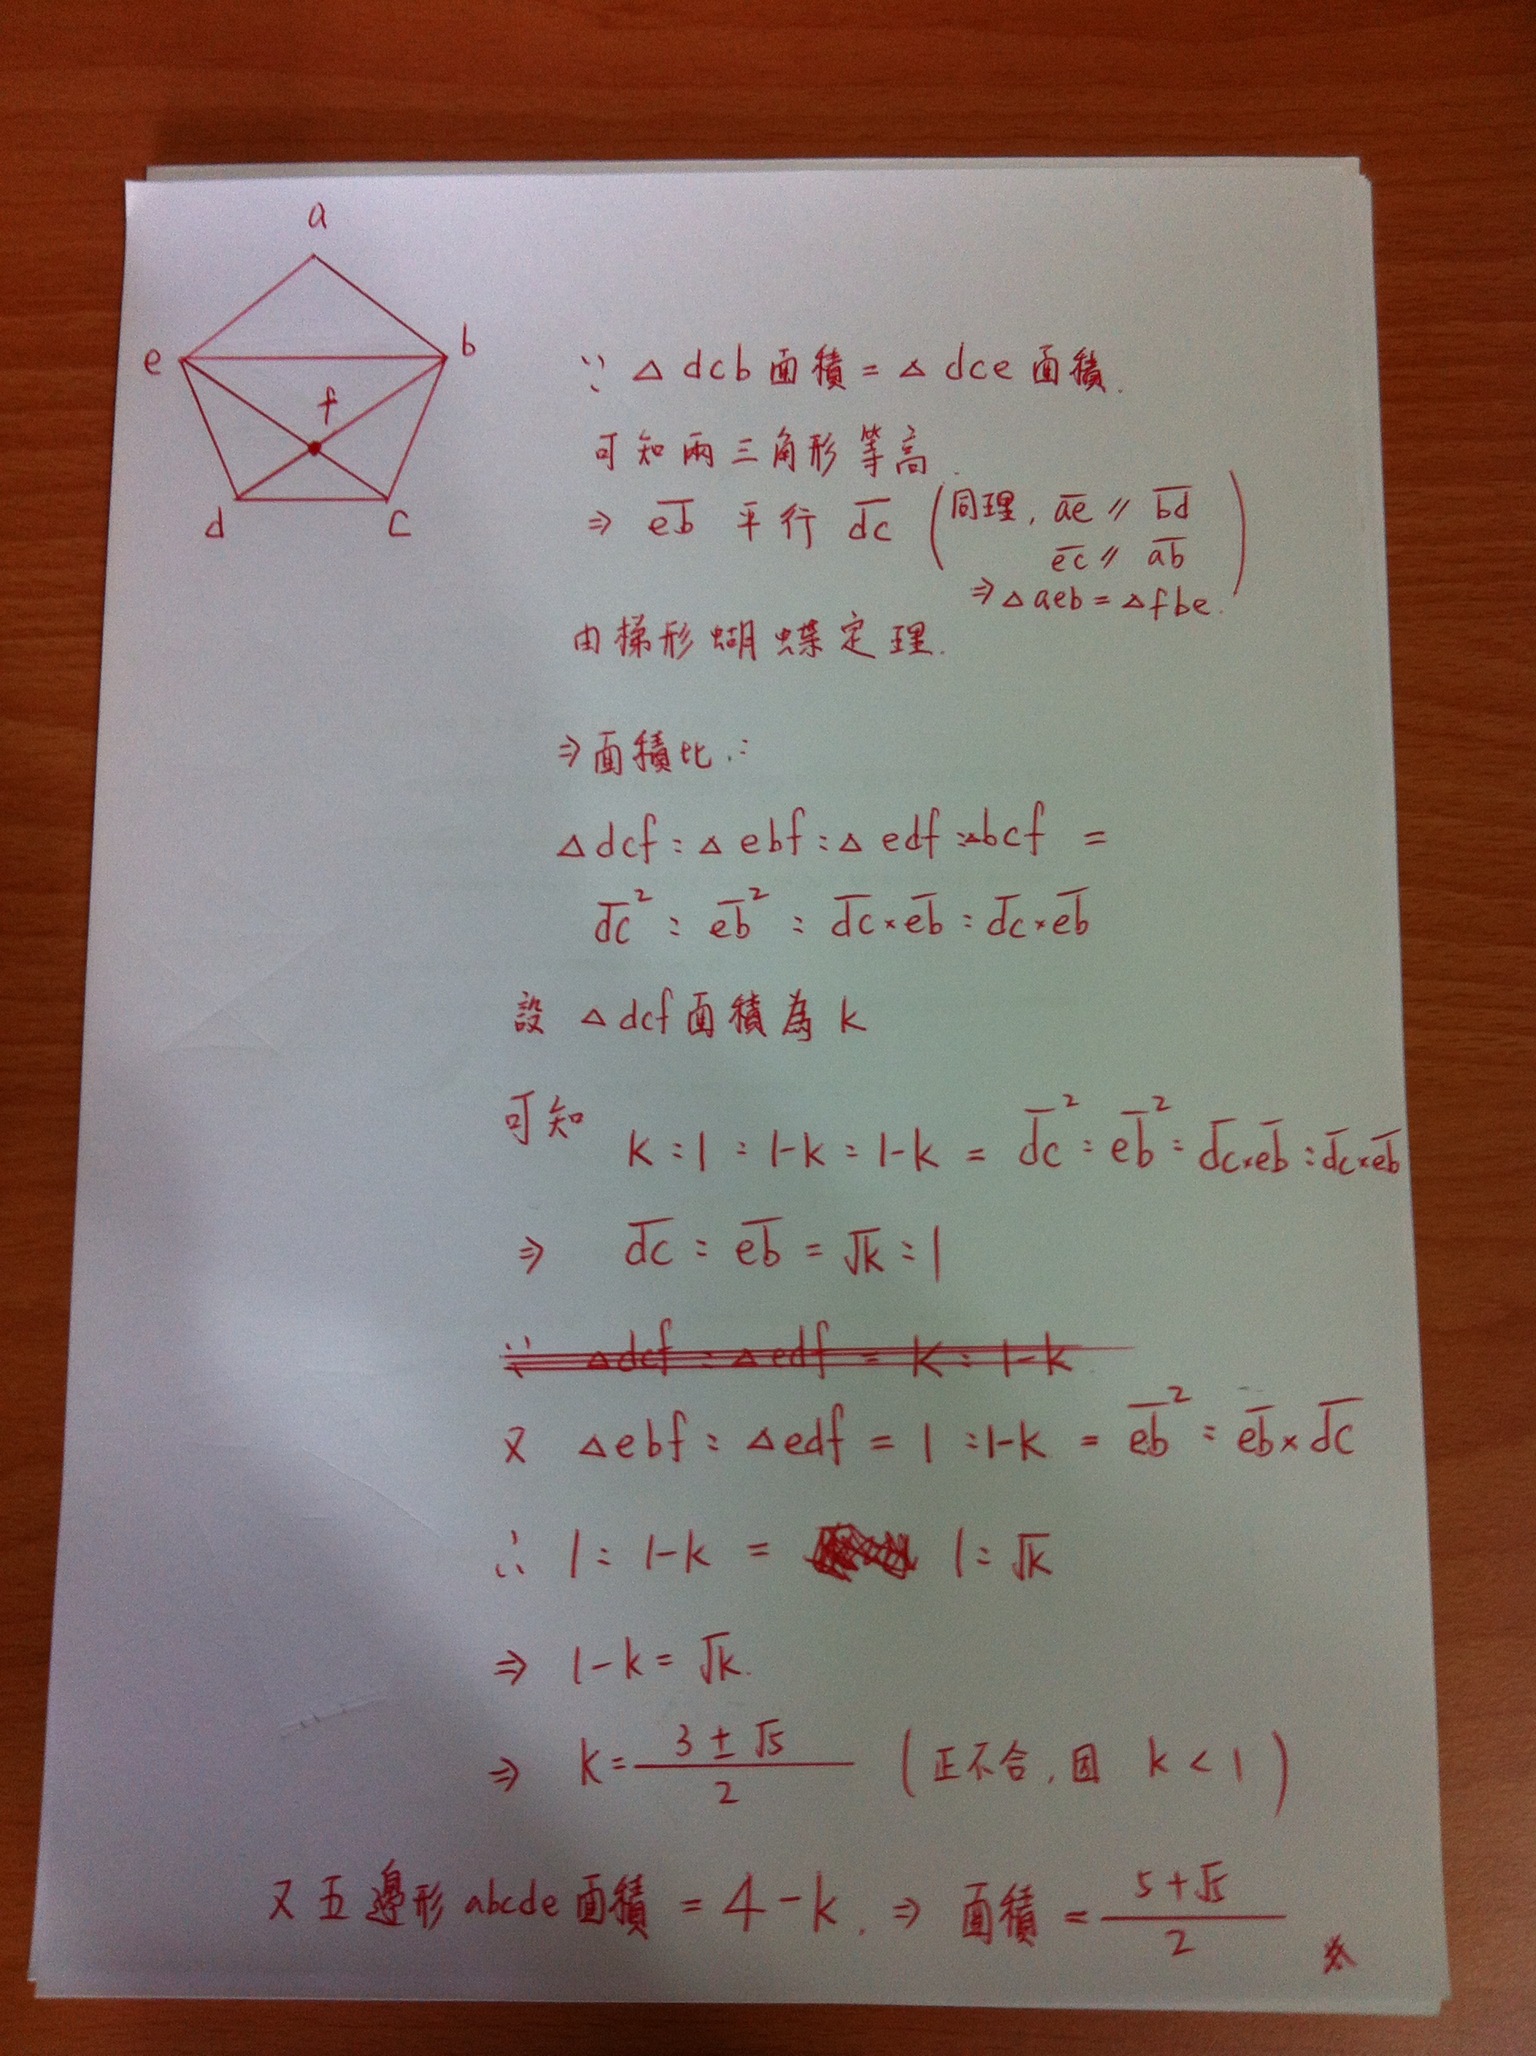 a
e
b
f
d
c
∵ △dcb面積 = △dce面積.
可知兩三角形等高.
⇒ e̅b̅ 平行 d̅c̅ (同理, a̅e̅ // b̅d̅
e̅c̅ // a̅b̅
⇒ △aeb = △fbe.)
由梯形蝴蝶定理.
⇒ 面積比:
△dcf : △ebf : △edf : △bcf =
d̅c̅² : e̅b̅² : d̅c̅×e̅b̅ : d̅c̅×e̅b̅
設 △dcf面積為 k
可知 k : 1 : 1-k : 1-k = d̅c̅² : e̅b̅² : d̅c̅×e̅b̅ : d̅c̅×e̅b̅
⇒ d̅c̅ : e̅b̅ = √k : 1
∵ △dcf : △edf = k : 1-k
又 △ebf : △edf = 1 : 1-k = e̅b̅² : e̅b̅×d̅c̅
∴ 1 : 1-k = 1 : √k
⇒ 1-k = √k.
⇒ k = (3±√5)/2 (正不合, 因 k < 1)
又五邊形abcde面積 = 4-k. ⇒ 面積 = (5+√5)/2